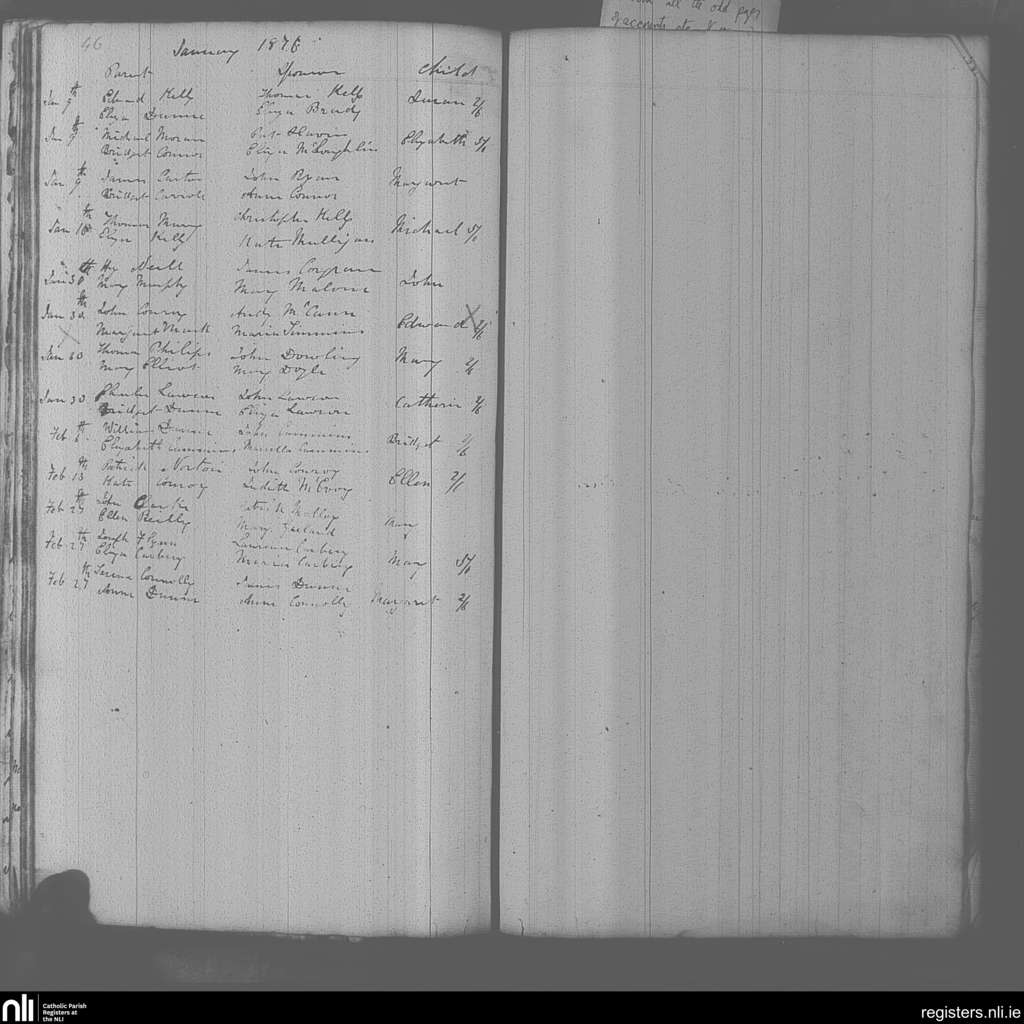 all the old pages
46
January 1876
Parent Sponsor Child
Jan 9th Edward Kelly Thomas Kelly Susan 2/6
Eliza Dunne Eliza Brady
Jan 9th Michael Moran Pat Elizabeth 5/
Bridget Connor Eliza McLoughlin
Jan 9th James John Ryan Margaret
Bridget Carroll Anne Connor
Jan 16th Thomas Christopher Kelly Michael 5/
Eliza Kelly Kate Mulligan
Jan 30th Hy Neill James Corgran John
Mary Murphy Mary Malone
Jan 30th John Conroy Andy McCann Edward 2/6
Margaret Maria Timmins
Jan 30 Thomas Philips John Dowling Mary 2/6
Mary Elliot Mary Doyle
Jan 30 Charles Lawson John Lawson Catherine 2/6
Bridget Dunne Eliza Lawson
Feb 6th William Dunne John Cummins Bridget 2/6
Elizabeth Cummins Marcella Cummins
Feb 13th Patrick Norton John Conroy Ellen 2/
Kate Conroy Judith McEvoy
Feb 27th John Clarke Patrick Molloy Mary
Ellen Reilly Mary Garland
Feb 27th Joseph Flynn Laurence Carbery Mary 5/
Eliza Carbery Maria Carbery
Feb 27th Connolly James Dunne Margaret 2/6
Anne Dunne Anne Connolly
nli
Catholic Parish
Registers at
the NLI
registers.nli.ie